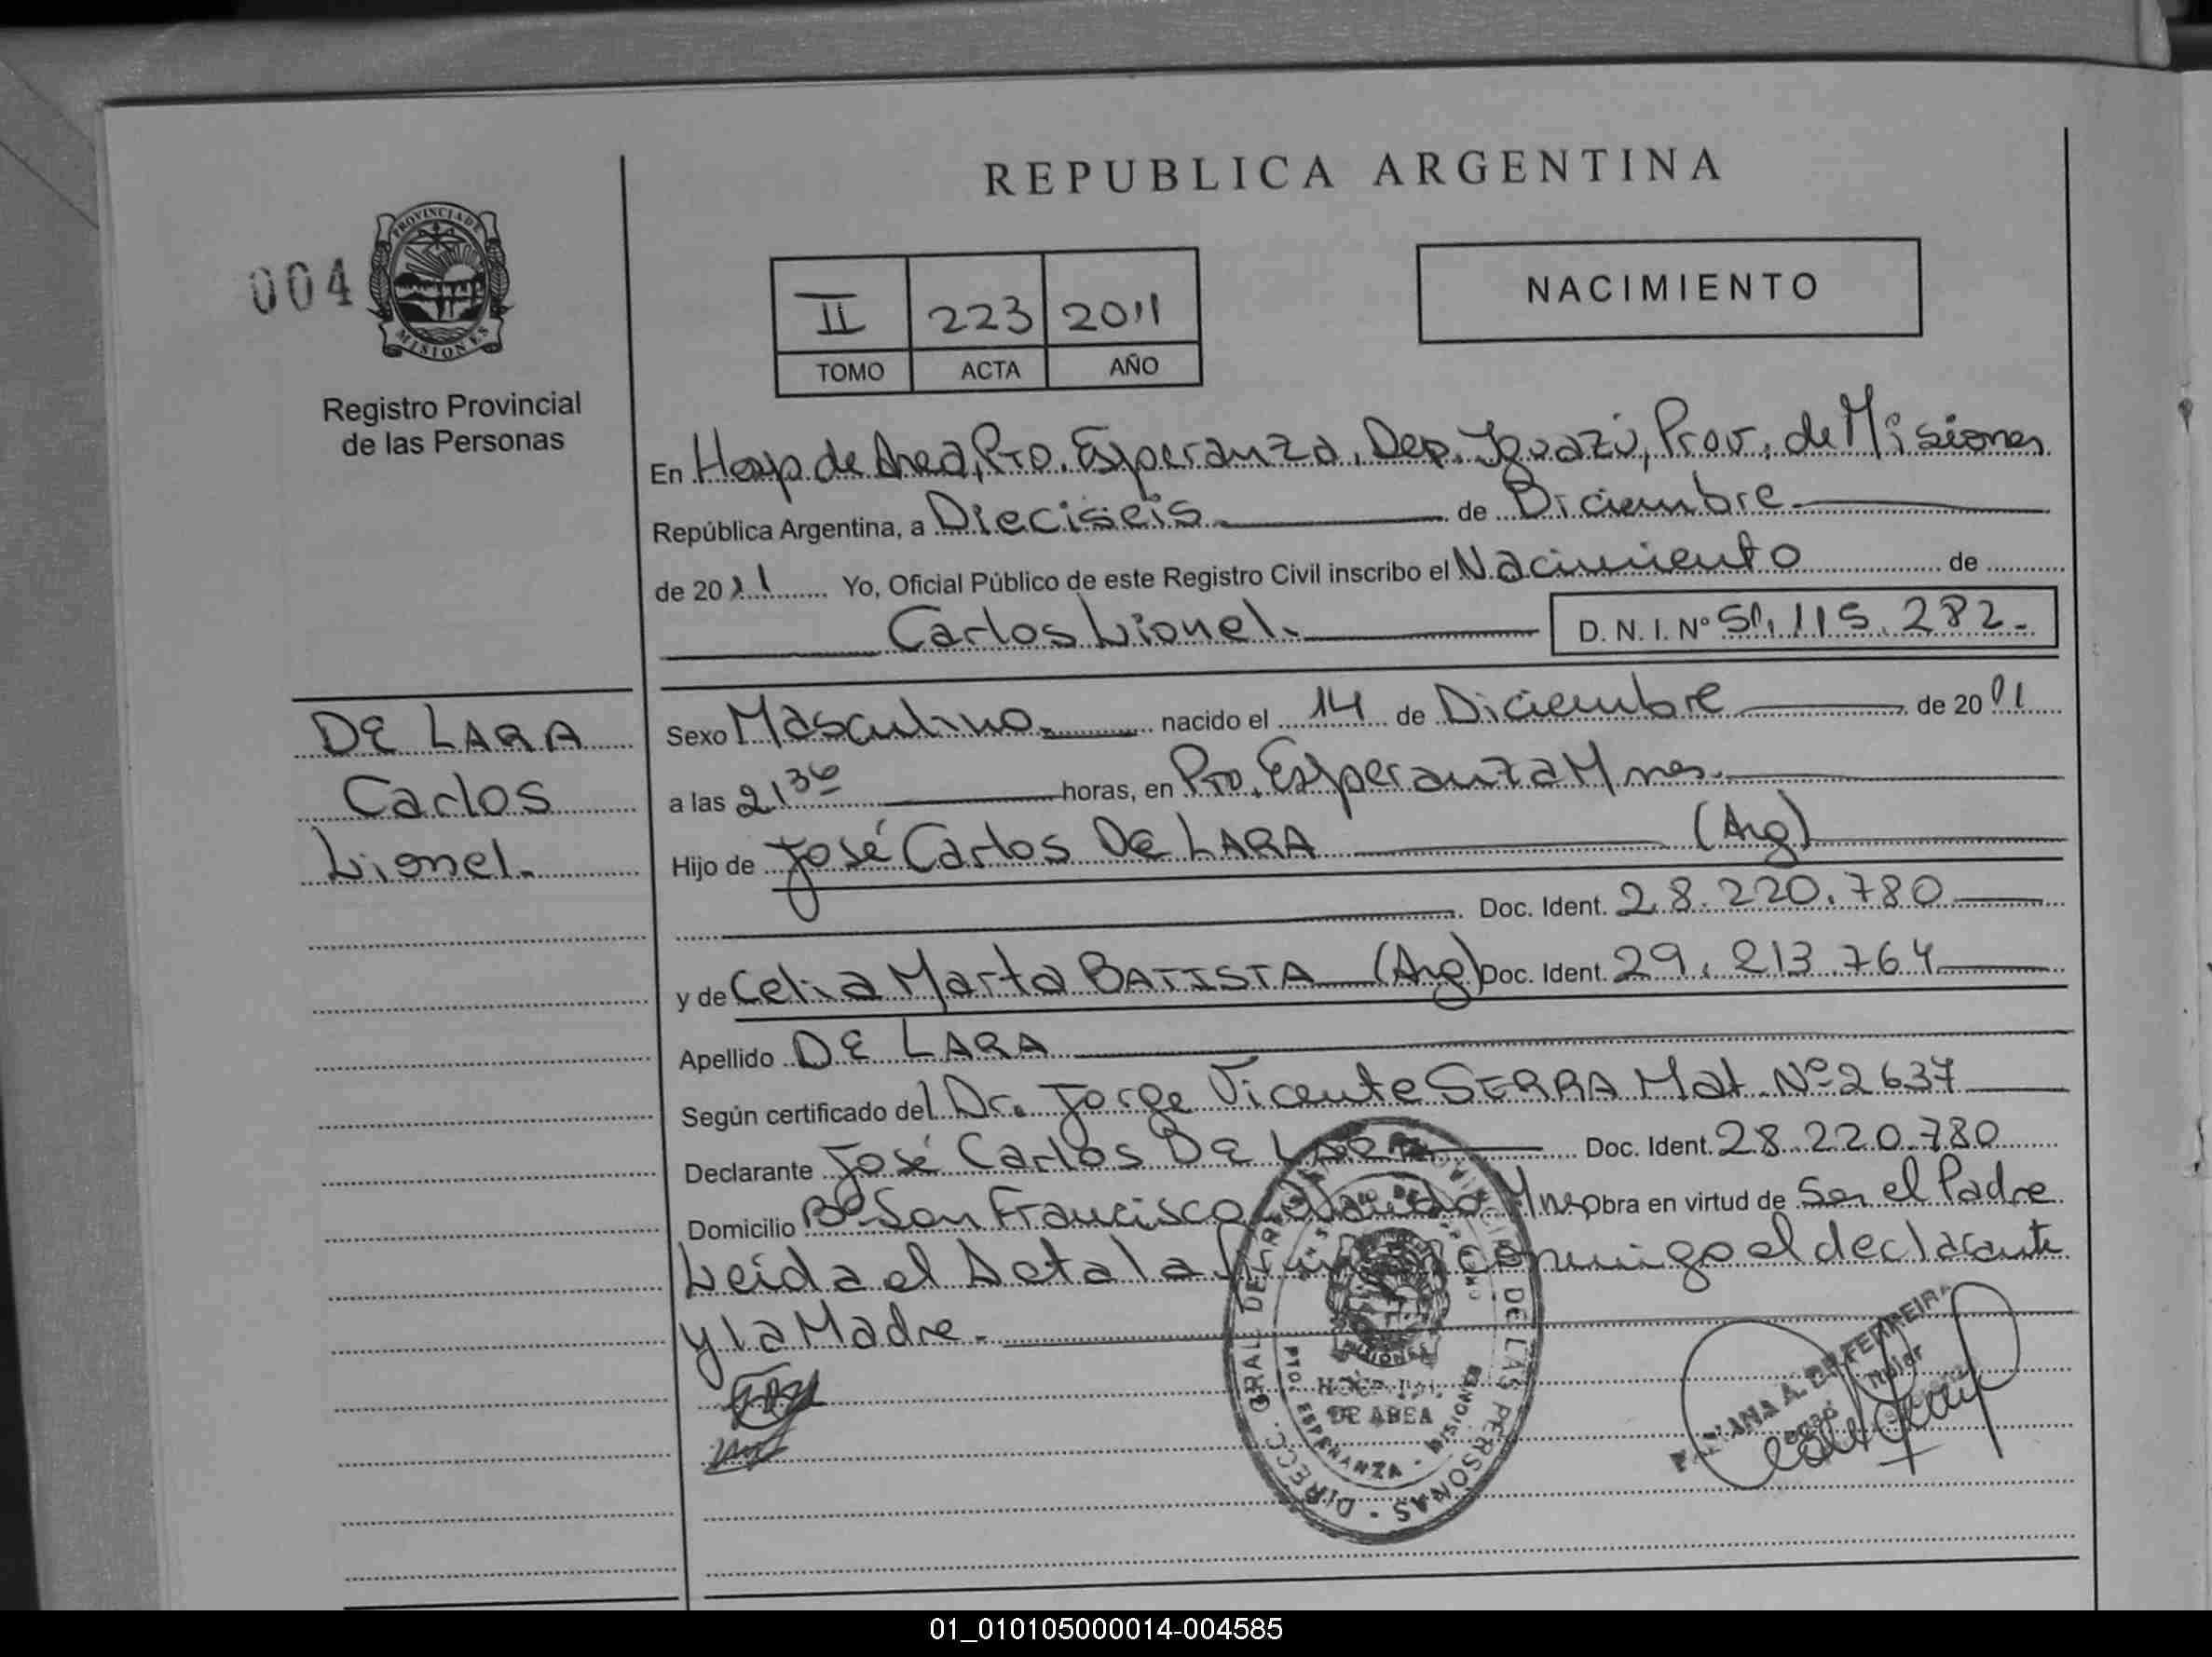 REPUBLICA ARGENTINA
004
PROVINCIA DE
MISIONES
Registro Provincial
de las Personas
II 223 2011
TOMO ACTA AÑO
NACIMIENTO
En Hosp de Area, Pto. Esperanza, Dep. Iguazú, Prov. de Misiones
República Argentina, a Dieciseis de Diciembre
de 2011 Yo, Oficial Público de este Registro Civil inscribo el Nacimiento de
Carlos Lionel. D. N. I. Nº 51.115.282.-
DE LARA
Carlos
Lionel.
Sexo Masculino. nacido el 14 de Diciembre de 2011
a las 21 36 horas, en Pto. Esperanza Mnes.
Hijo de José Carlos DE LARA (Arg)
Doc. Ident. 28.220.780
y de Celia Marta BATISTA (Arg) Doc. Ident. 29.213.764
Apellido DE LARA
Según certificado del Dr. Jorge Vicente SERRA Mat. Nº 2637
Declarante José Carlos DE LARA Doc. Ident. 28.220.780
Domicilio Bº San Francisco Mnes Obra en virtud de Ser el Padre
Leida el Acta la conmigo el declarante
y la Madre.-
DIRECC. GRAL. DE PROVINCIAL DE LAS PERSONAS
MISIONES
HOSPITAL
DE AREA
PTO. ESPERANZA - MISIONES
A. DE FERREIRA
Titular
01_010105000014-004585